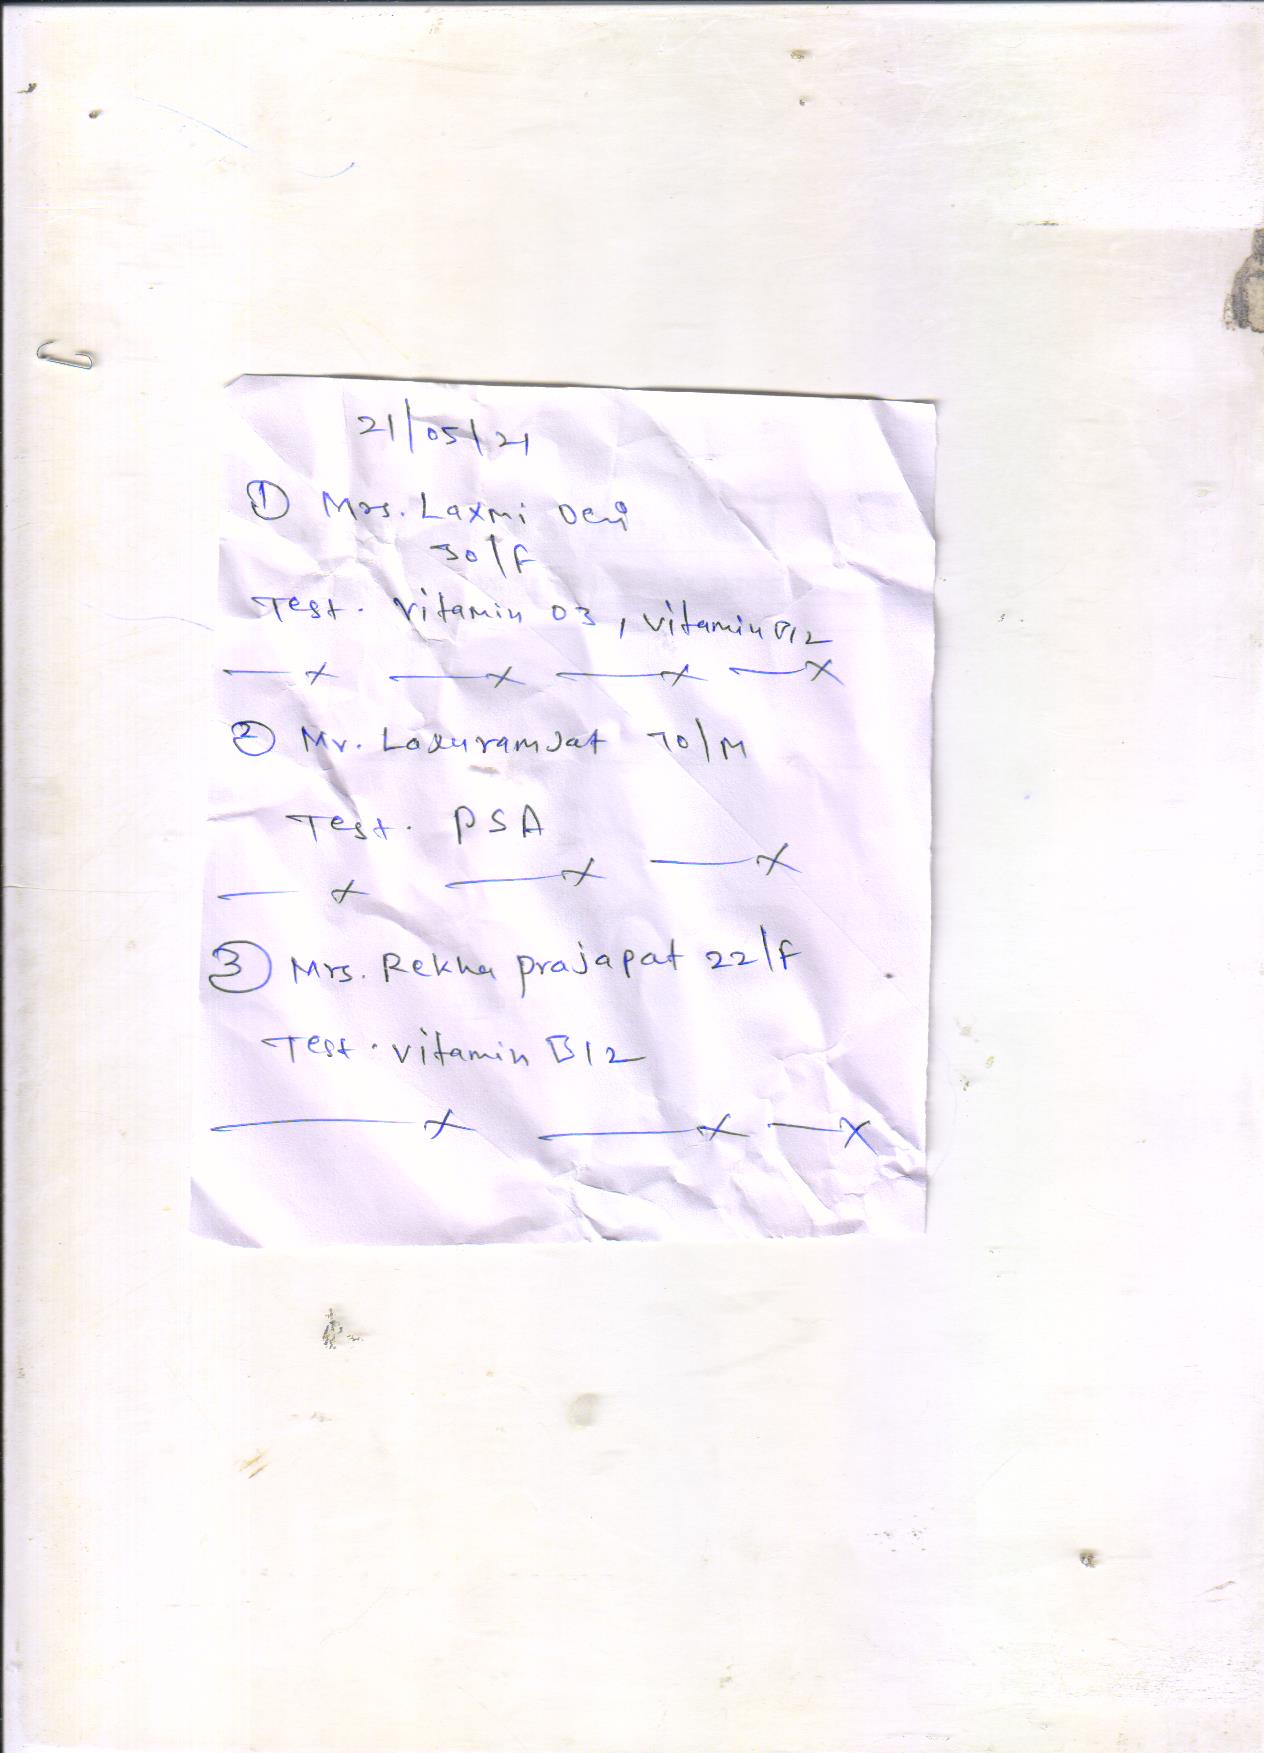 21/05/21
① Mrs. Laxmi Devi
30/F
Test. Vitamin D3, Vitamin B12
② Mr. Laduram Jat 70/M
Test. PSA
③ Mrs. Rekha prajapat 22/F
Test. vitamin B12